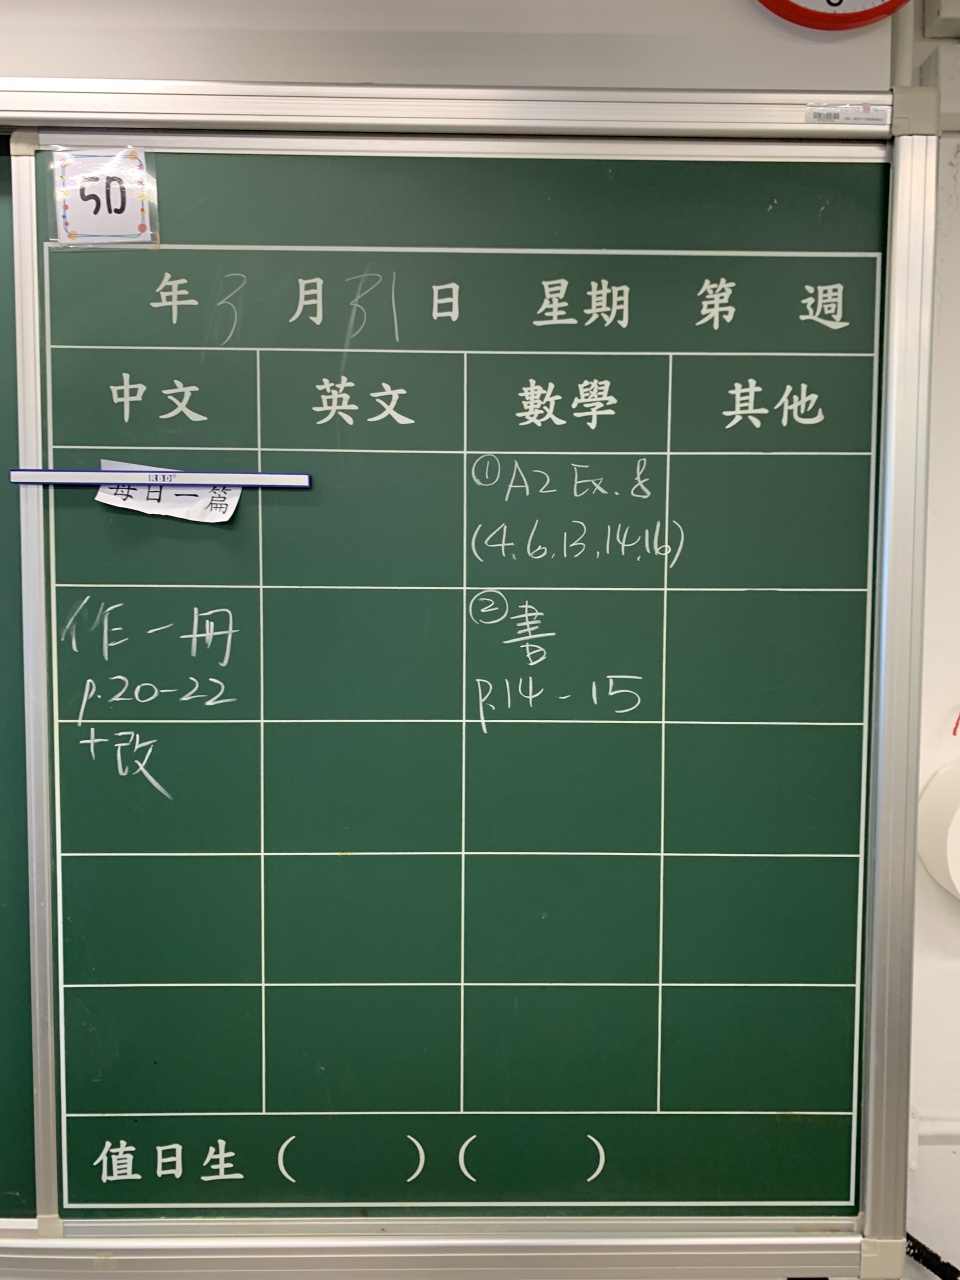 5D
年 3 月 31 日 星期 第 週
中文 英文 數學 其他
RBD
每日一篇
① A2 Ex. 8
(4, 6, 13, 14, 16)
作一冊
p.20-22
+改
② 書
p.14-15
值日生 ( ) ( )